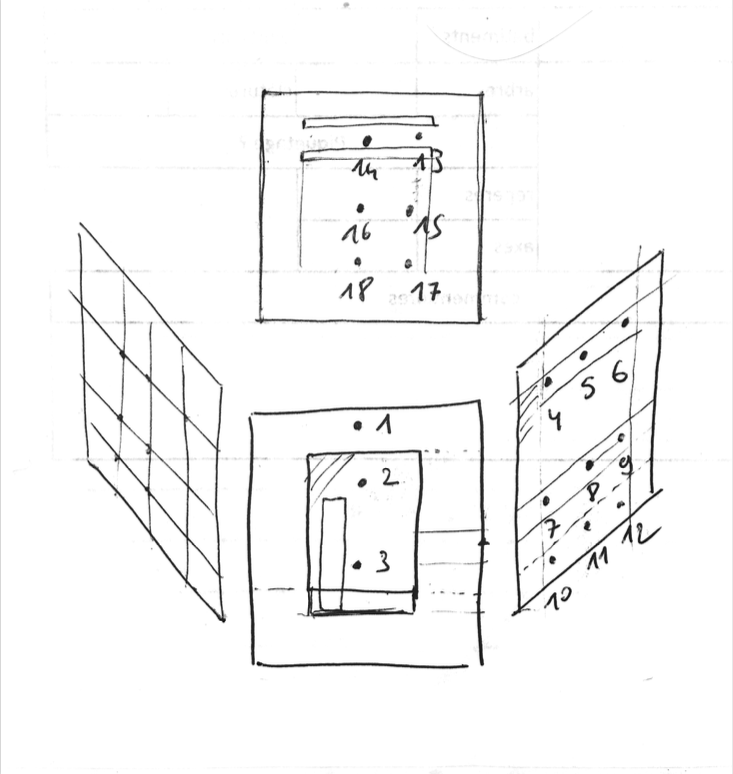 14 13
16 15
18 17
1
2
3
4 5 6
7 8 9
10 11 12